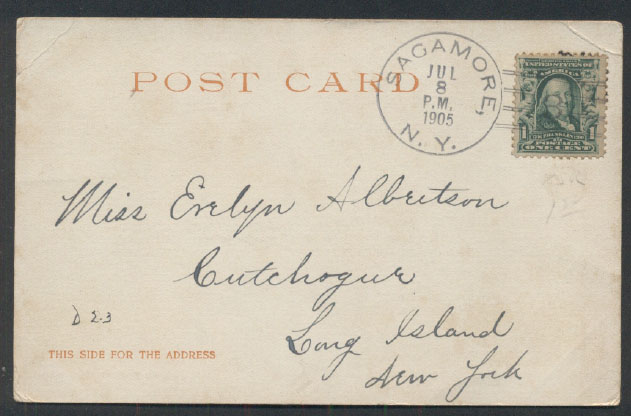 POST CARD
SAGAMORE, N. Y.
JUL
8
P.M.
1905
UNITED STATES OF
AMERICA
1 1
POSTAGE
ONE CENT
Miss Evelyn Albertson
Cutchogue
Long Island
New York
D E-3
THIS SIDE FOR THE ADDRESS